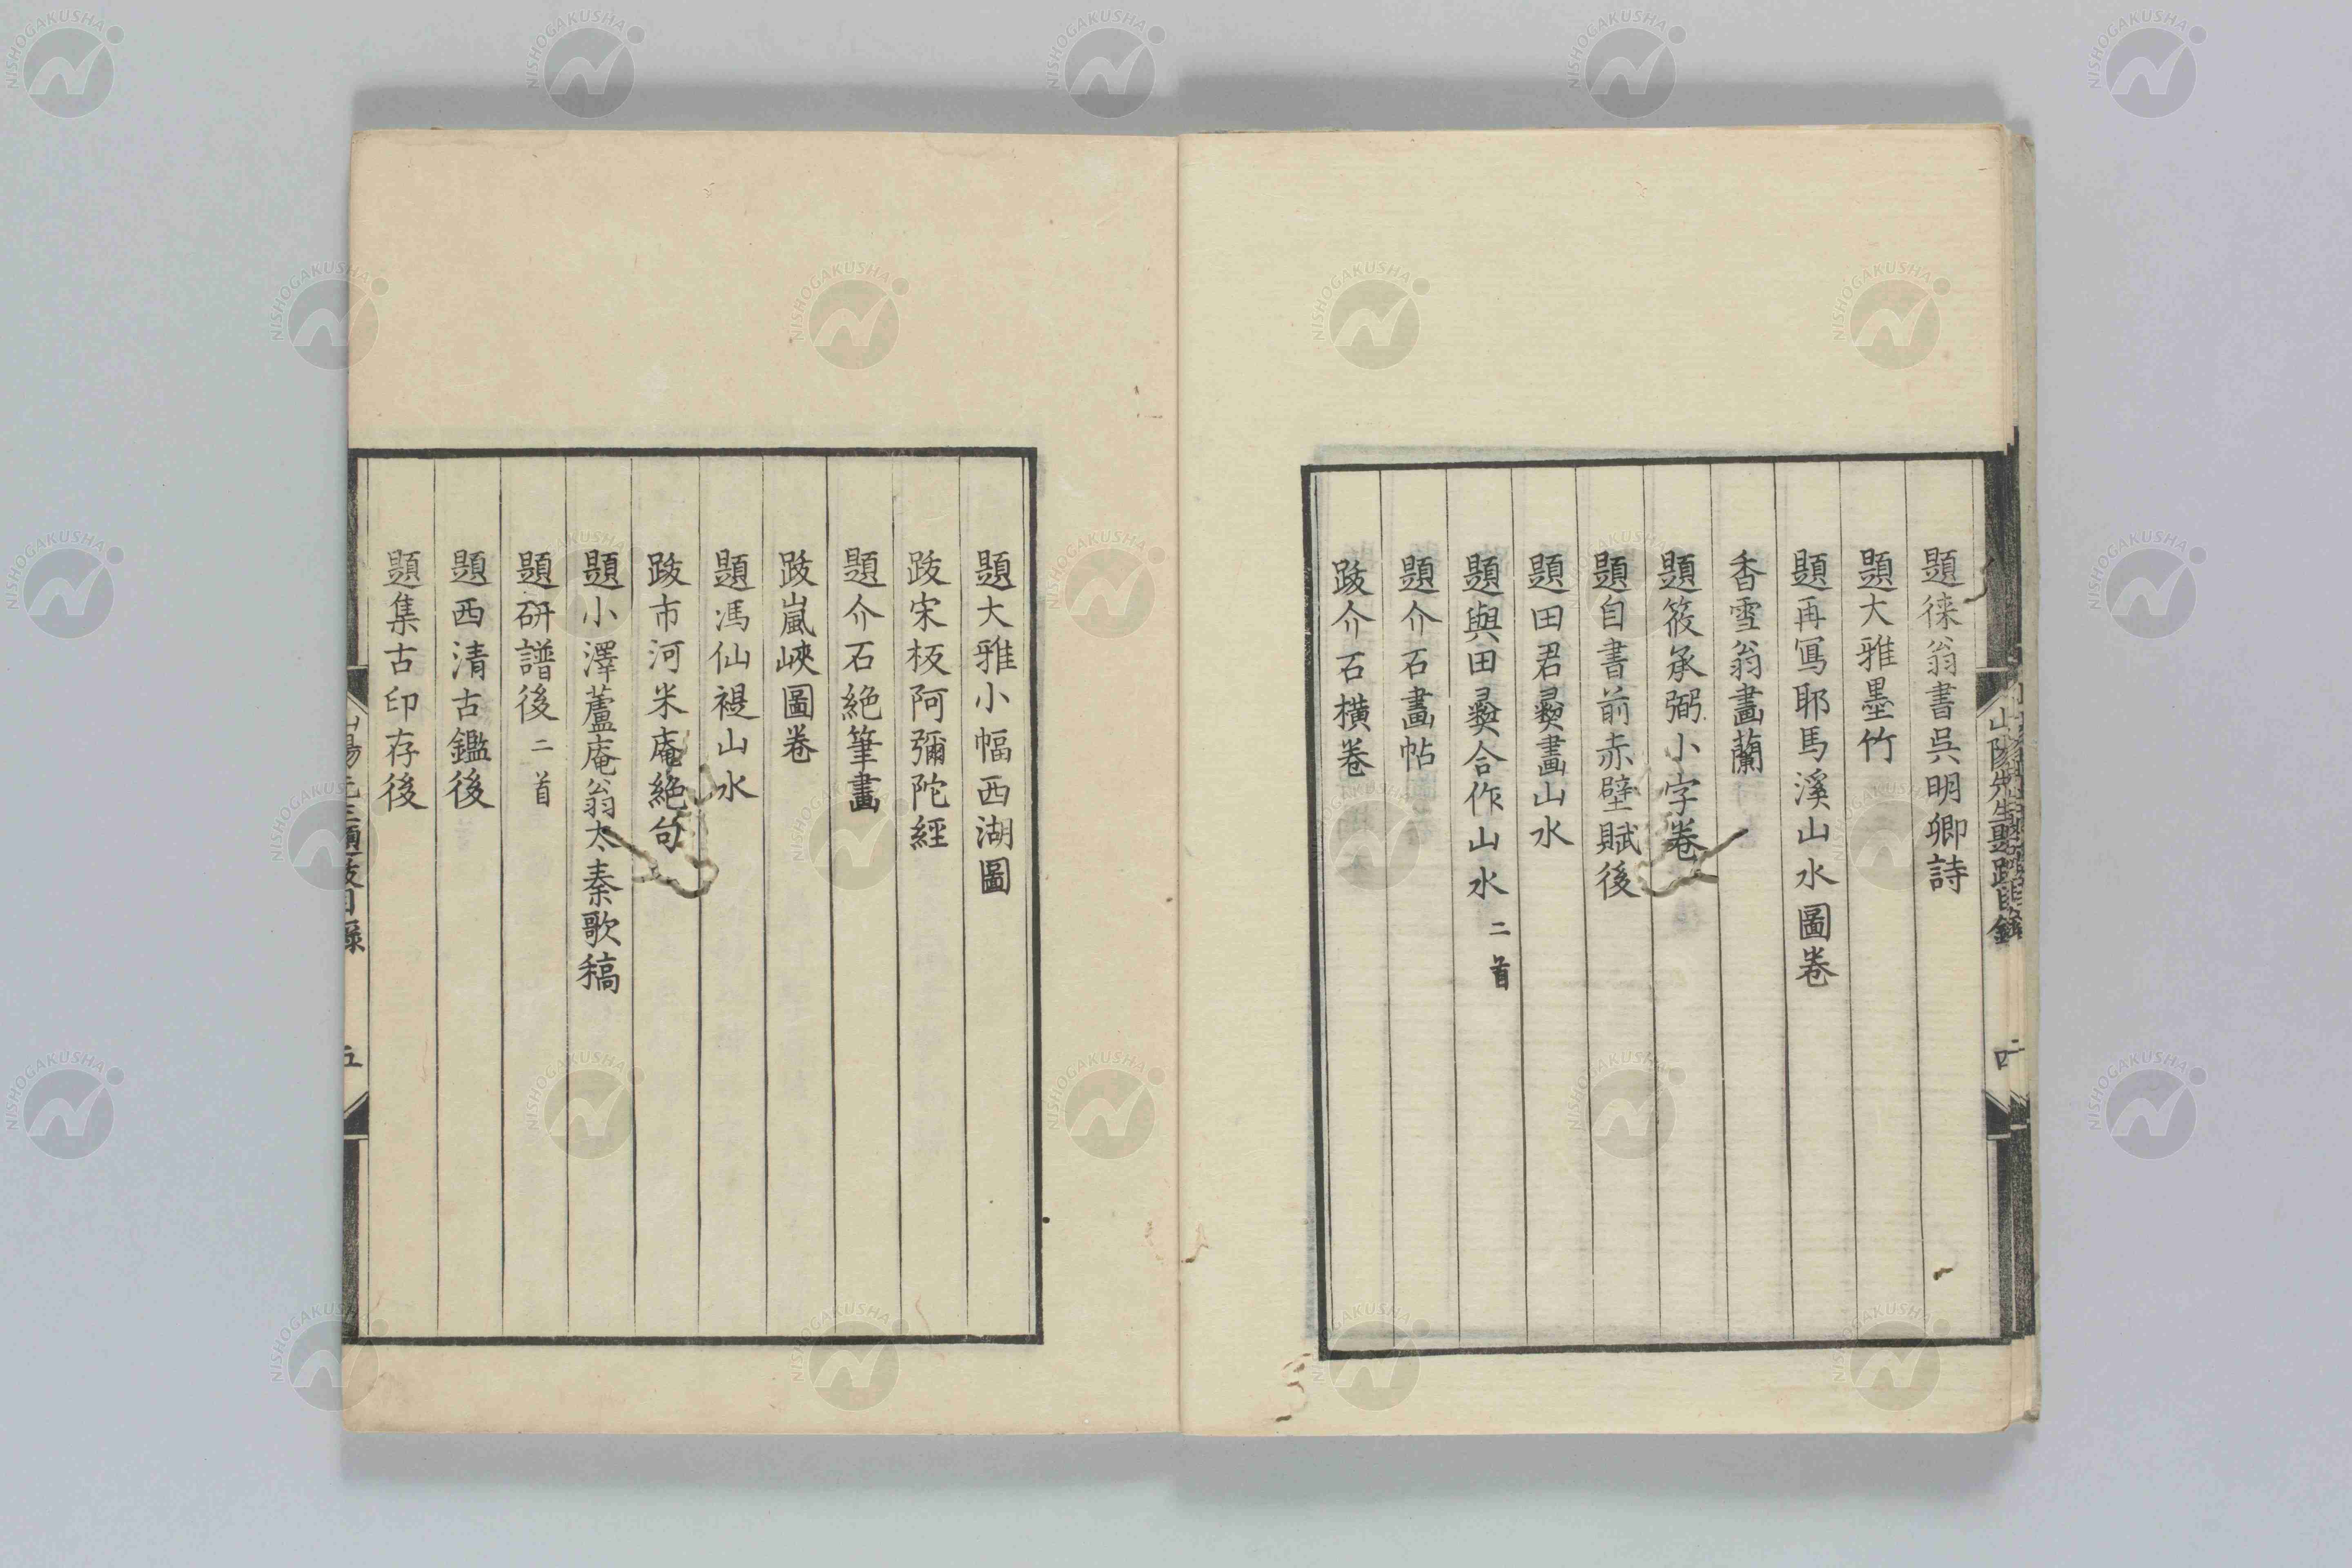 題徠翁書吳明卿詩
題大雅墨竹
題再寫耶馬溪山水圖卷
香雪翁畫蘭
題筱承弼小字卷
題自書前赤壁賦後
題田君彝畫山水
題與田彝合作山水 二首
題介石畫帖
跋介石橫卷
山陽先生題跋目錄
四
題大雅小幅西湖圖
跋宋板阿彌陀經
題介石絕筆畫
跋嵐峽圖卷
題馮仙褆山水
跋市河米庵絕句
題小澤蘆庵翁太秦歌稿
題研譜後 二首
題西清古鑑後
題集古印存後
五
NISHOGAKUSHA